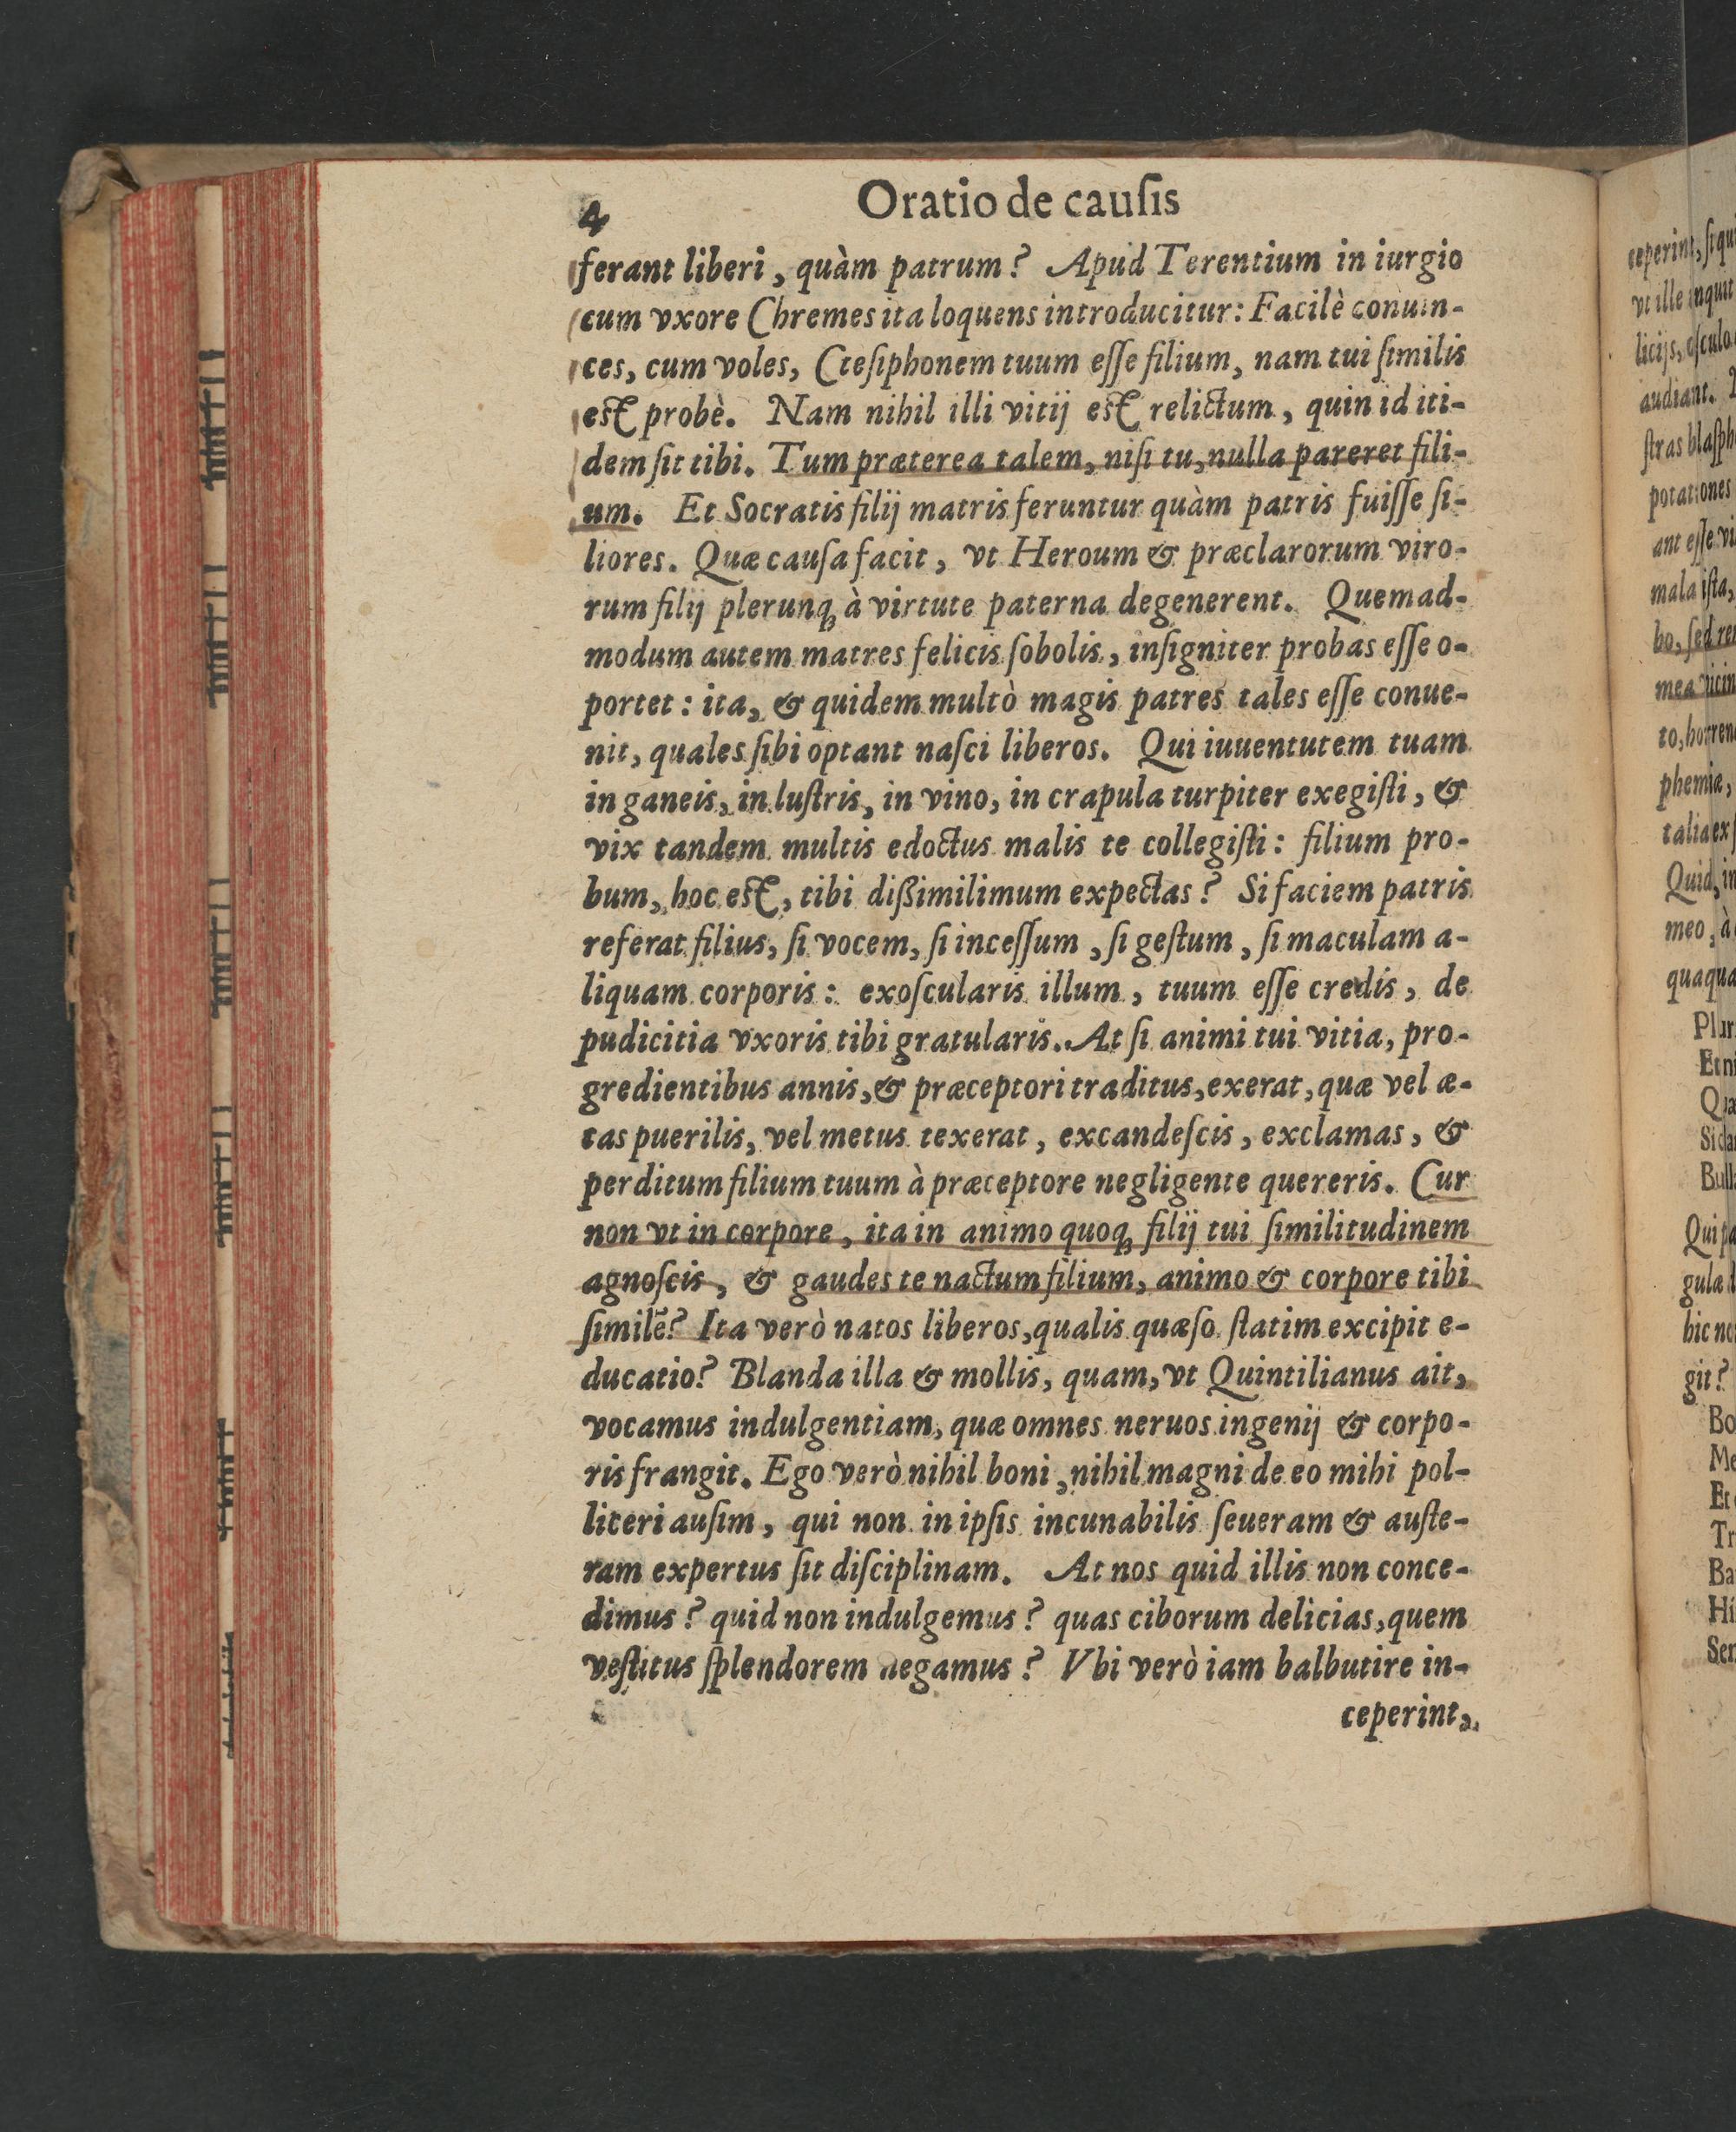 4 Oratio de cauſis
ferant liberi, quàm patrum? Apud Terentium in iurgio
cum vxore Chremes ita loquens introducitur: Facilè conuin-
ces, cum voles, Cteſiphonem tuum eſſe filium, nam tui ſimilis
est probè. Nam nihil illi vitij est relictum, quin id iti-
dem ſit tibi. Tum præterea talem, niſi tu, nulla pareret fili-
um. Et Socratis filij matris feruntur quàm patris fuiſſe ſi-
liores. Quæ cauſa facit, vt Heroum & præclarorum viro-
rum filij plerunq; à virtute paterna degenerent. Quemad-
modum autem matres felicis ſobolis, inſigniter probas eſſe o-
portet: ita, & quidem multò magis patres tales eſſe conue-
nit, quales ſibi optant naſci liberos. Qui iuuentutem tuam
in ganeis, in luſtris, in vino, in crapula turpiter exegiſti, &
vix tandem multis edoctus malis te collegiſti: filium pro-
bum, hoc est, tibi dißimilimum expectas? Si faciem patris
referat filius, ſi vocem, ſi inceſſum, ſi geſtum, ſi maculam a-
liquam corporis: exoſcularis illum, tuum eſſe credis, de
pudicitia vxoris tibi gratularis. At ſi animi tui vitia, pro-
gredientibus annis, & præceptori traditus, exerat, quæ vel æ-
tas puerilis, vel metus texerat, excandeſcis, exclamas, &
perditum filium tuum à præceptore negligente quereris. Cur
non vt in corpore, ita in animo quoq; filij tui ſimilitudinem
agnoſcis, & gaudes te nactum filium, animo & corpore tibi
ſimilē? Ita verò natos liberos, qualis quæſo ſtatim excipit e-
ducatio? Blanda illa & mollis, quam, vt Quintilianus ait,
vocamus indulgentiam, quæ omnes neruos ingenij & corpo-
ris frangit. Ego verò nihil boni, nihil magni de eo mihi pol-
liceri auſim, qui non in ipſis incunabilis ſeueram & auſte-
ram expertus ſit diſciplinam. At nos quid illis non conce-
dimus? quid non indulgemus? quas ciborum delicias, quem
veſtitus ſplendorem negamus? Vbi verò iam balbutire in-
ceperint,
ceperint, ſi
vt ille inquit
audiant.
potationes
mala iſta,
phemiæ,
Quid, in
meo, à
Et
gulæ
hic
git?
Bo
Me
Et
Tr
Ba
Hi
Ser